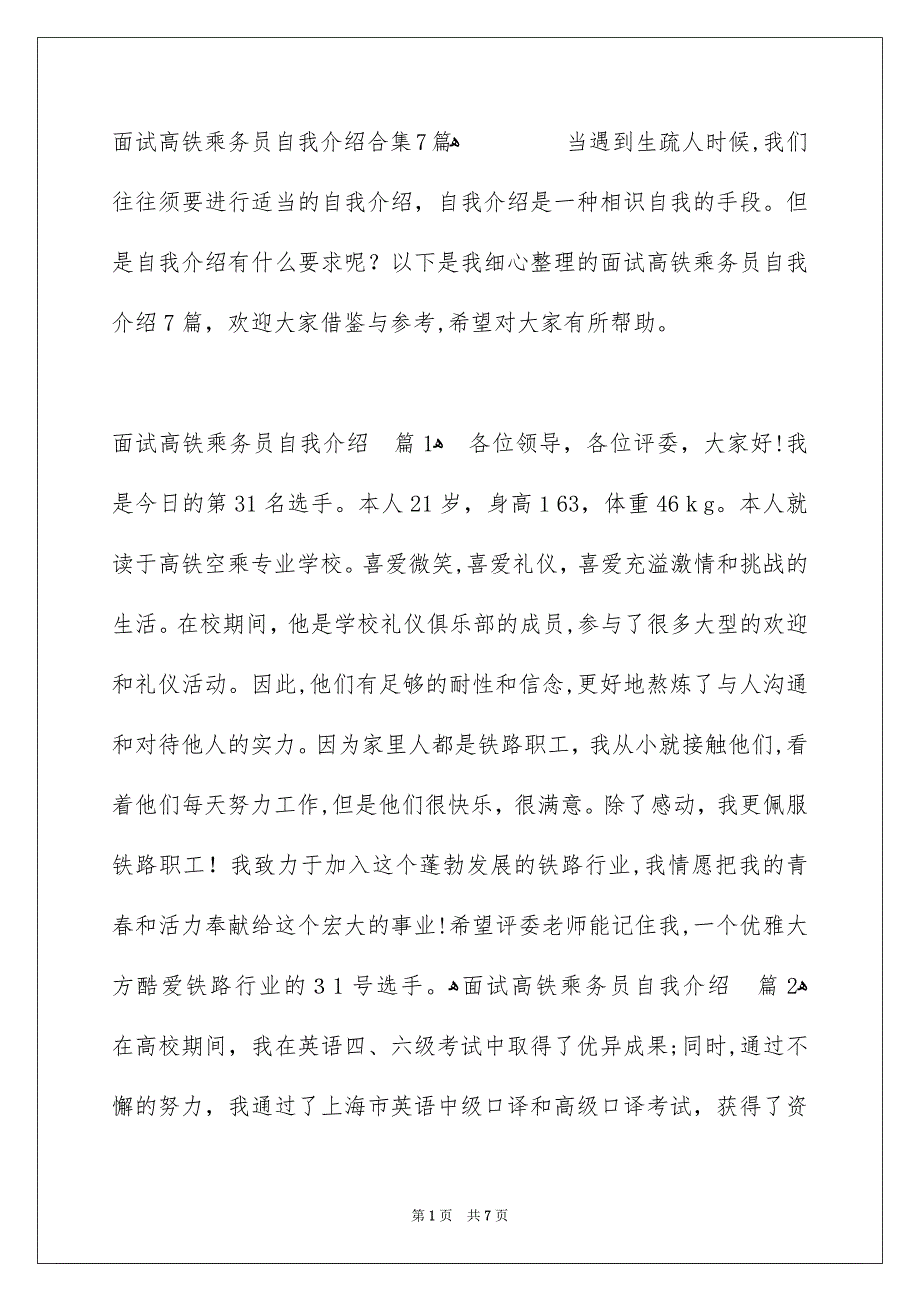 面试高铁乘务员自我介绍合集7篇ﻩ　　　　当遇到生疏人时候,我们
往往须要进行适当的自我介绍，自我介绍是一种相识自我的手段。但
是自我介绍有什么要求呢？以下是我细心整理的面试高铁乘务员自我
介绍7篇，欢迎大家借鉴与参考,希望对大家有所帮助。
面试高铁乘务员自我介绍　篇1ﻩ　各位领导，各位评委，大家好!我
是今日的第31名选手。本人21岁，身高163，体重46kg。本人就
读于高铁空乘专业学校。喜爱微笑,喜爱礼仪，喜爱充溢激情和挑战的
生活。在校期间，他是学校礼仪俱乐部的成员,参与了很多大型的欢迎
和礼仪活动。因此,他们有足够的耐性和信念,更好地熬炼了与人沟通
和对待他人的实力。因为家里人都是铁路职工，我从小就接触他们,看
着他们每天努力工作,但是他们很快乐，很满意。除了感动，我更佩服
铁路职工！我致力于加入这个蓬勃发展的铁路行业,我情愿把我的青
春和活力奉献给这个宏大的事业!希望评委老师能记住我,一个优雅大
方酷爱铁路行业的31号选手。ﻩ面试高铁乘务员自我介绍　篇2ﻩ
在高校期间，我在英语四、六级考试中取得了优异成果;同时,通过不
懈的努力，我通过了上海市英语中级口译和高级口译考试，获得了资
第1页　共7页